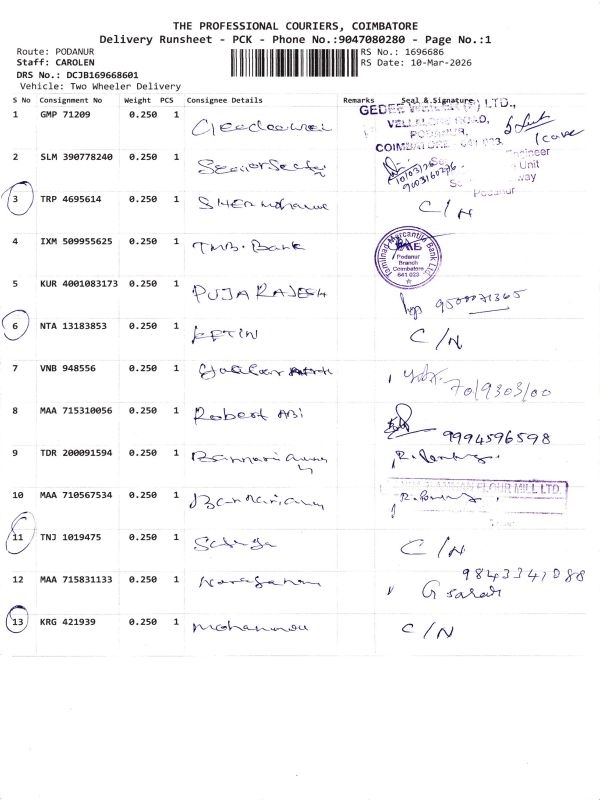 THE PROFESSIONAL COURIERS, COIMBATORE
Delivery Runsheet - PCK - Phone No.:9047080280 - Page No.:1
Route: PODANUR
RS No.: 1696686
Staff: CAROLEN
RS Date: 10-Mar-2026
DRS No.: DCJB169668601
Vehicle: Two Wheeler Delivery
S No Consignment No Weight PCS Consignee Details Remarks Seal & Signature
1 GMP 71209 0.250 1
GEDEE (P) LTD.,
VELLALORE ROAD,
PODANUR,
COIMBATORE - 641 023.
1 cover
2 SLM 390778240 0.250 1
Engineer
Unit
way
Podanur
10/03/26
9003160276
3 TRP 4695614 0.250 1 C/N
4 IXM 509955625 0.250 1 TMB. Bank
Tamilnad Mercantile Bank Ltd.
Podanur
Branch
Coimbatore
641 023
5 KUR 4001083173 0.250 1 PUJA RAJESH 9500071365
6 NTA 13183853 0.250 1 C/N
7 VNB 948556 0.250 1
8 MAA 715310056 0.250 1 Robert ABi 9994596598
9 TDR 200091594 0.250 1
10 MAA 710567534 0.250 1
FLOUR MILL LTD.
11 TNJ 1019475 0.250 1 C/N
12 MAA 715831133 0.250 1 9843347088
G Sarad
13 KRG 421939 0.250 1 C/N